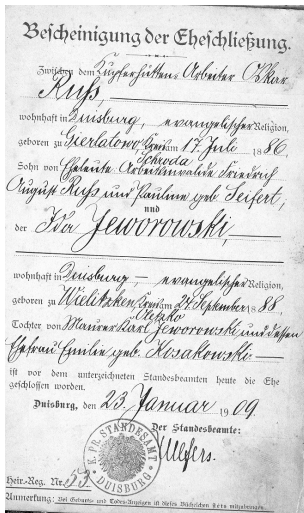 Bescheinigung der Eheschließung.
Zwischen dem Kupferhütten-Arbeiter Oskar
Ruß,
wohnhaft in Duisburg, evangelischer Religion,
geboren zu Gierlatowo, Kreis am 17. Juli 1886,
Schroda
Sohn von Eheleute Friedrich
August Ruß und Pauline geb. Seifert,
und
der Ida Jeworowski,
wohnhaft in Duisburg, — evangelischer Religion,
geboren zu Wielitzken, Kreis am 24. September 1888.
Oletzko
Tochter von Maurer Karl Jeworowski und dessen
Ehefrau Emilie geb. Kosakowski —
ist vor dem unterzeichneten Standesbeamten heute die Ehe
geschlossen worden.
Duisburg, den 23. Januar 1909.
Der Standesbeamte:
K. PR. STANDESAMT
DUISBURG
Heir.-Reg. Nr. 53.
Anmerkung: Bei Geburts- und Todes-Anzeigen ist dieses Büchelchen stets mitzubringen.